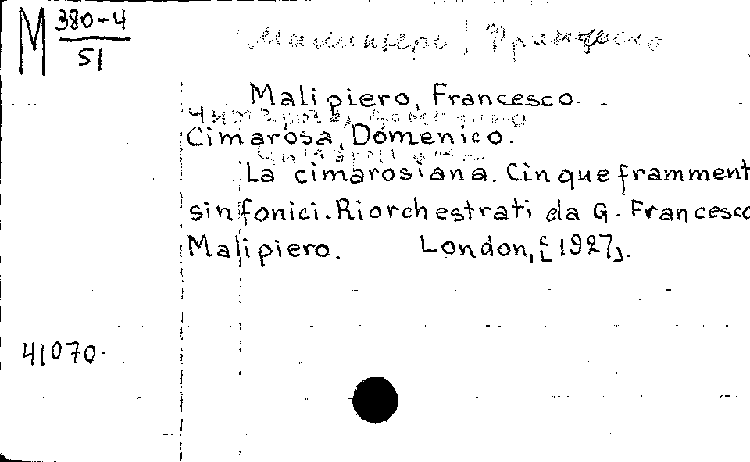 M 380-4
51
Малипьеро, Франческо
Malipiero, Francesco.
Cimarosa, Domenico.
La cimarosiana. Cinque framment
sinfonici. Riorchestrati da G. Francesco
Malipiero. London, [1927].
41070.